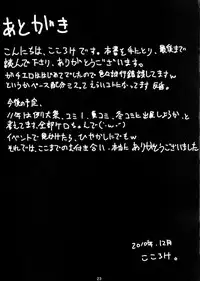 あとがき
こんにちは、こころけです。本書を手にとり、最後まで
読んで下さり、ありがとうございます。
がチエロははじめてでしたので色々試行錯誤してますw
というかペース配分ミスってえらいコトになってます 反省。
今後の予定。
11年は例大祭、コミ1、夏コミ、冬コミに出ようかと
考えてます。全部ケロちゃんで(´・ω・`)
イベントで見かけたら、ひやかしにでもw
それでは、ここまでのお付き合い、本当にありがとうございました
2010年.12月
こころけ。
23